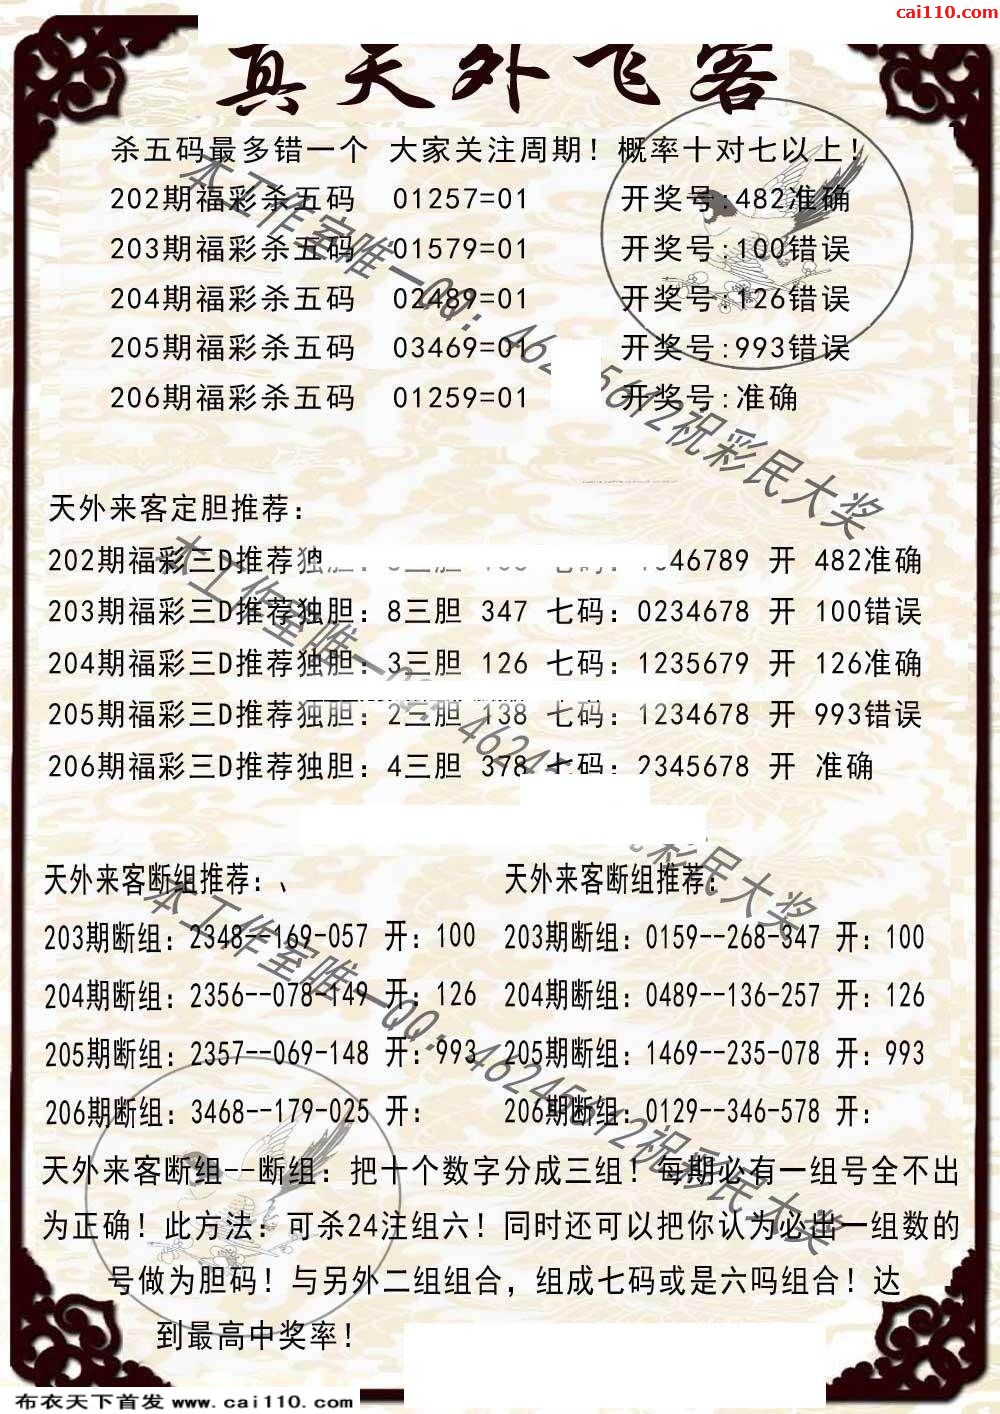 cai110.com
真天外飞客
杀五码最多错一个 大家关注周期！概率十对七以上！
202期福彩杀五码 01257=01 开奖号:482准确
203期福彩杀五码 01579=01 开奖号:100错误
204期福彩杀五码 02489=01 开奖号:126错误
205期福彩杀五码 03469=01 开奖号:993错误
206期福彩杀五码 01259=01 开奖号:准确
天外来客定胆推荐：
202期福彩三D推荐独胆： 46789 开 482准确
203期福彩三D推荐独胆：8三胆 347 七码：0234678 开 100错误
204期福彩三D推荐独胆：3三胆 126 七码：1235679 开 126准确
205期福彩三D推荐独胆：2三胆 138 七码：1234678 开 993错误
206期福彩三D推荐独胆：4三胆 378 七码：2345678 开 准确
天外来客断组推荐：、 天外来客断组推荐：
203期断组：2348--169-057 开：100 203期断组：0159--268-347 开：100
204期断组：2356--078-149 开：126 204期断组：0489--136-257 开：126
205期断组：2357--069-148 开：993 205期断组：1469--235-078 开：993
206期断组：3468--179-025 开： 206期断组：0129--346-578 开：
天外来客断组--断组：把十个数字分成三组！每期必有一组号全不出
为正确！此方法：可杀24注组六！同时还可以把你认为必出一组数的
号做为胆码！与另外二组组合，组成七码或是六吗组合！达
到最高中奖率！
本工作室唯一QQ：462 5612祝彩民大奖
本工作室唯一QQ：4624 彩民大奖
本工作室唯一QQ：46245612祝彩民大奖
布衣天下首发 www.cai110.com